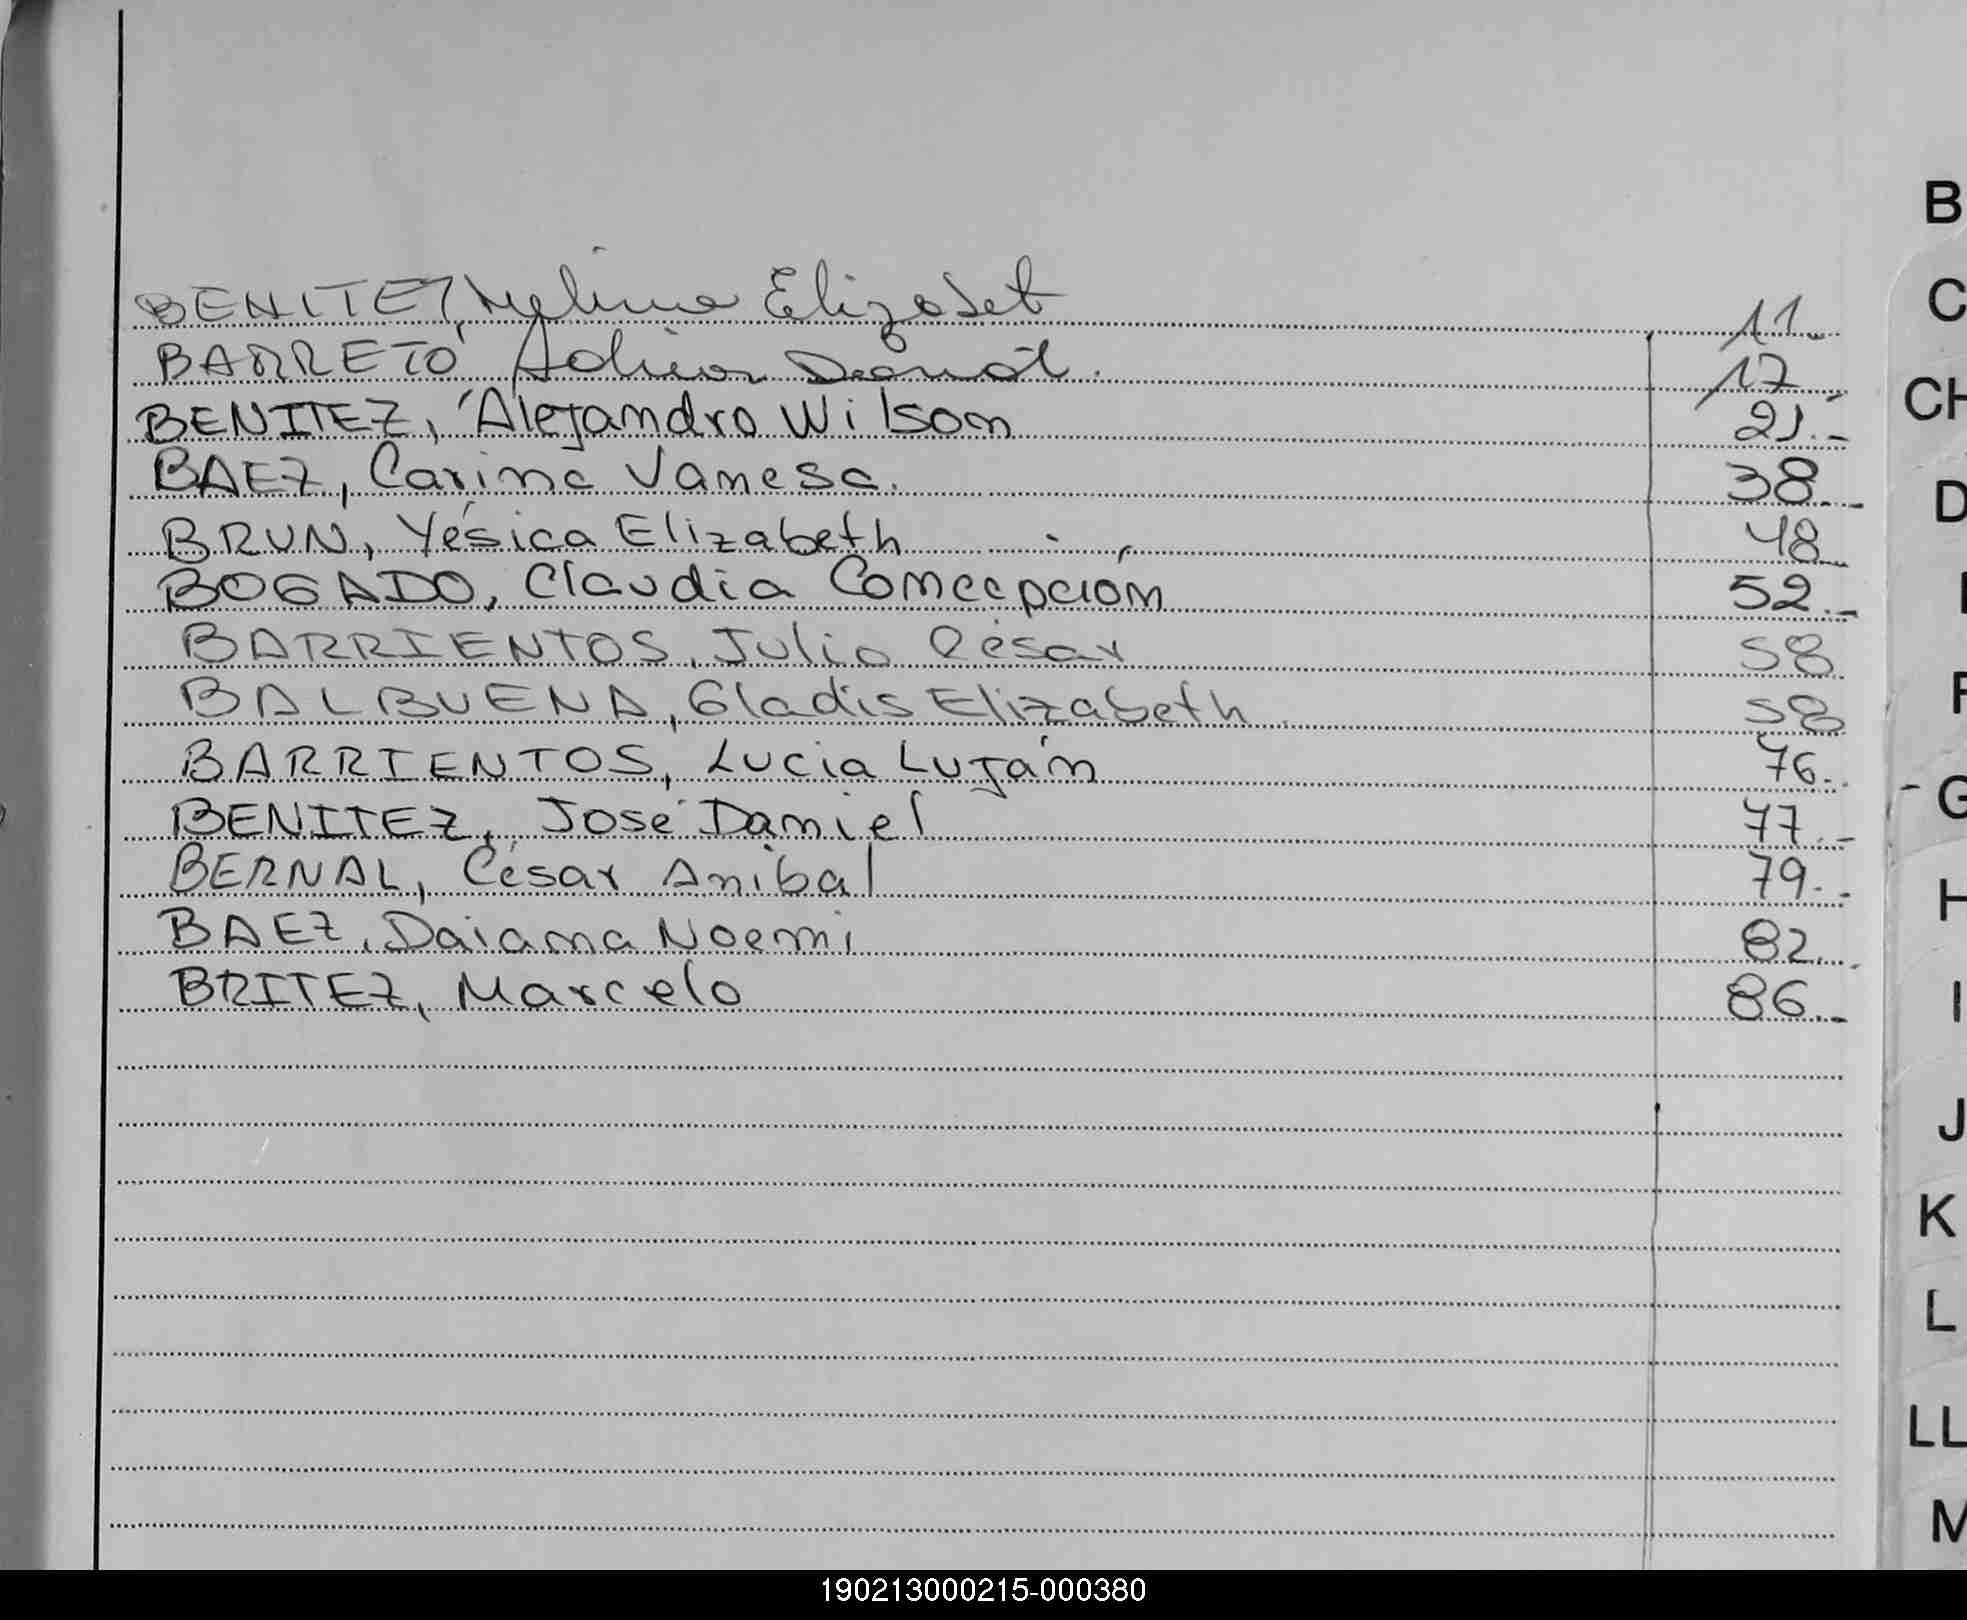 BENITEZ, Melina Elizabet 11.-
BARRETO, Adrian 17
BENITEZ, Alejandro Wilson 21.-
BAEZ, Carina Vanesa. 38.-
BRUN, Yésica Elizabeth 48
BOGADO, Claudia Concepción 52.-
BARRIENTOS, Julio César 58
BALBUENA, Gladis Elizabeth. 58
BARRIENTOS, Lucia Luján 76.-
BENITEZ, José Daniel 77.-
BERNAL, César Anibal 79.-
BAEZ, Daiana Noemi 82.-
BRITEZ, Marcelo 86.-
B
C
CH
D
F
G
H
I
J
K
L
LL
M
190213000215-000380